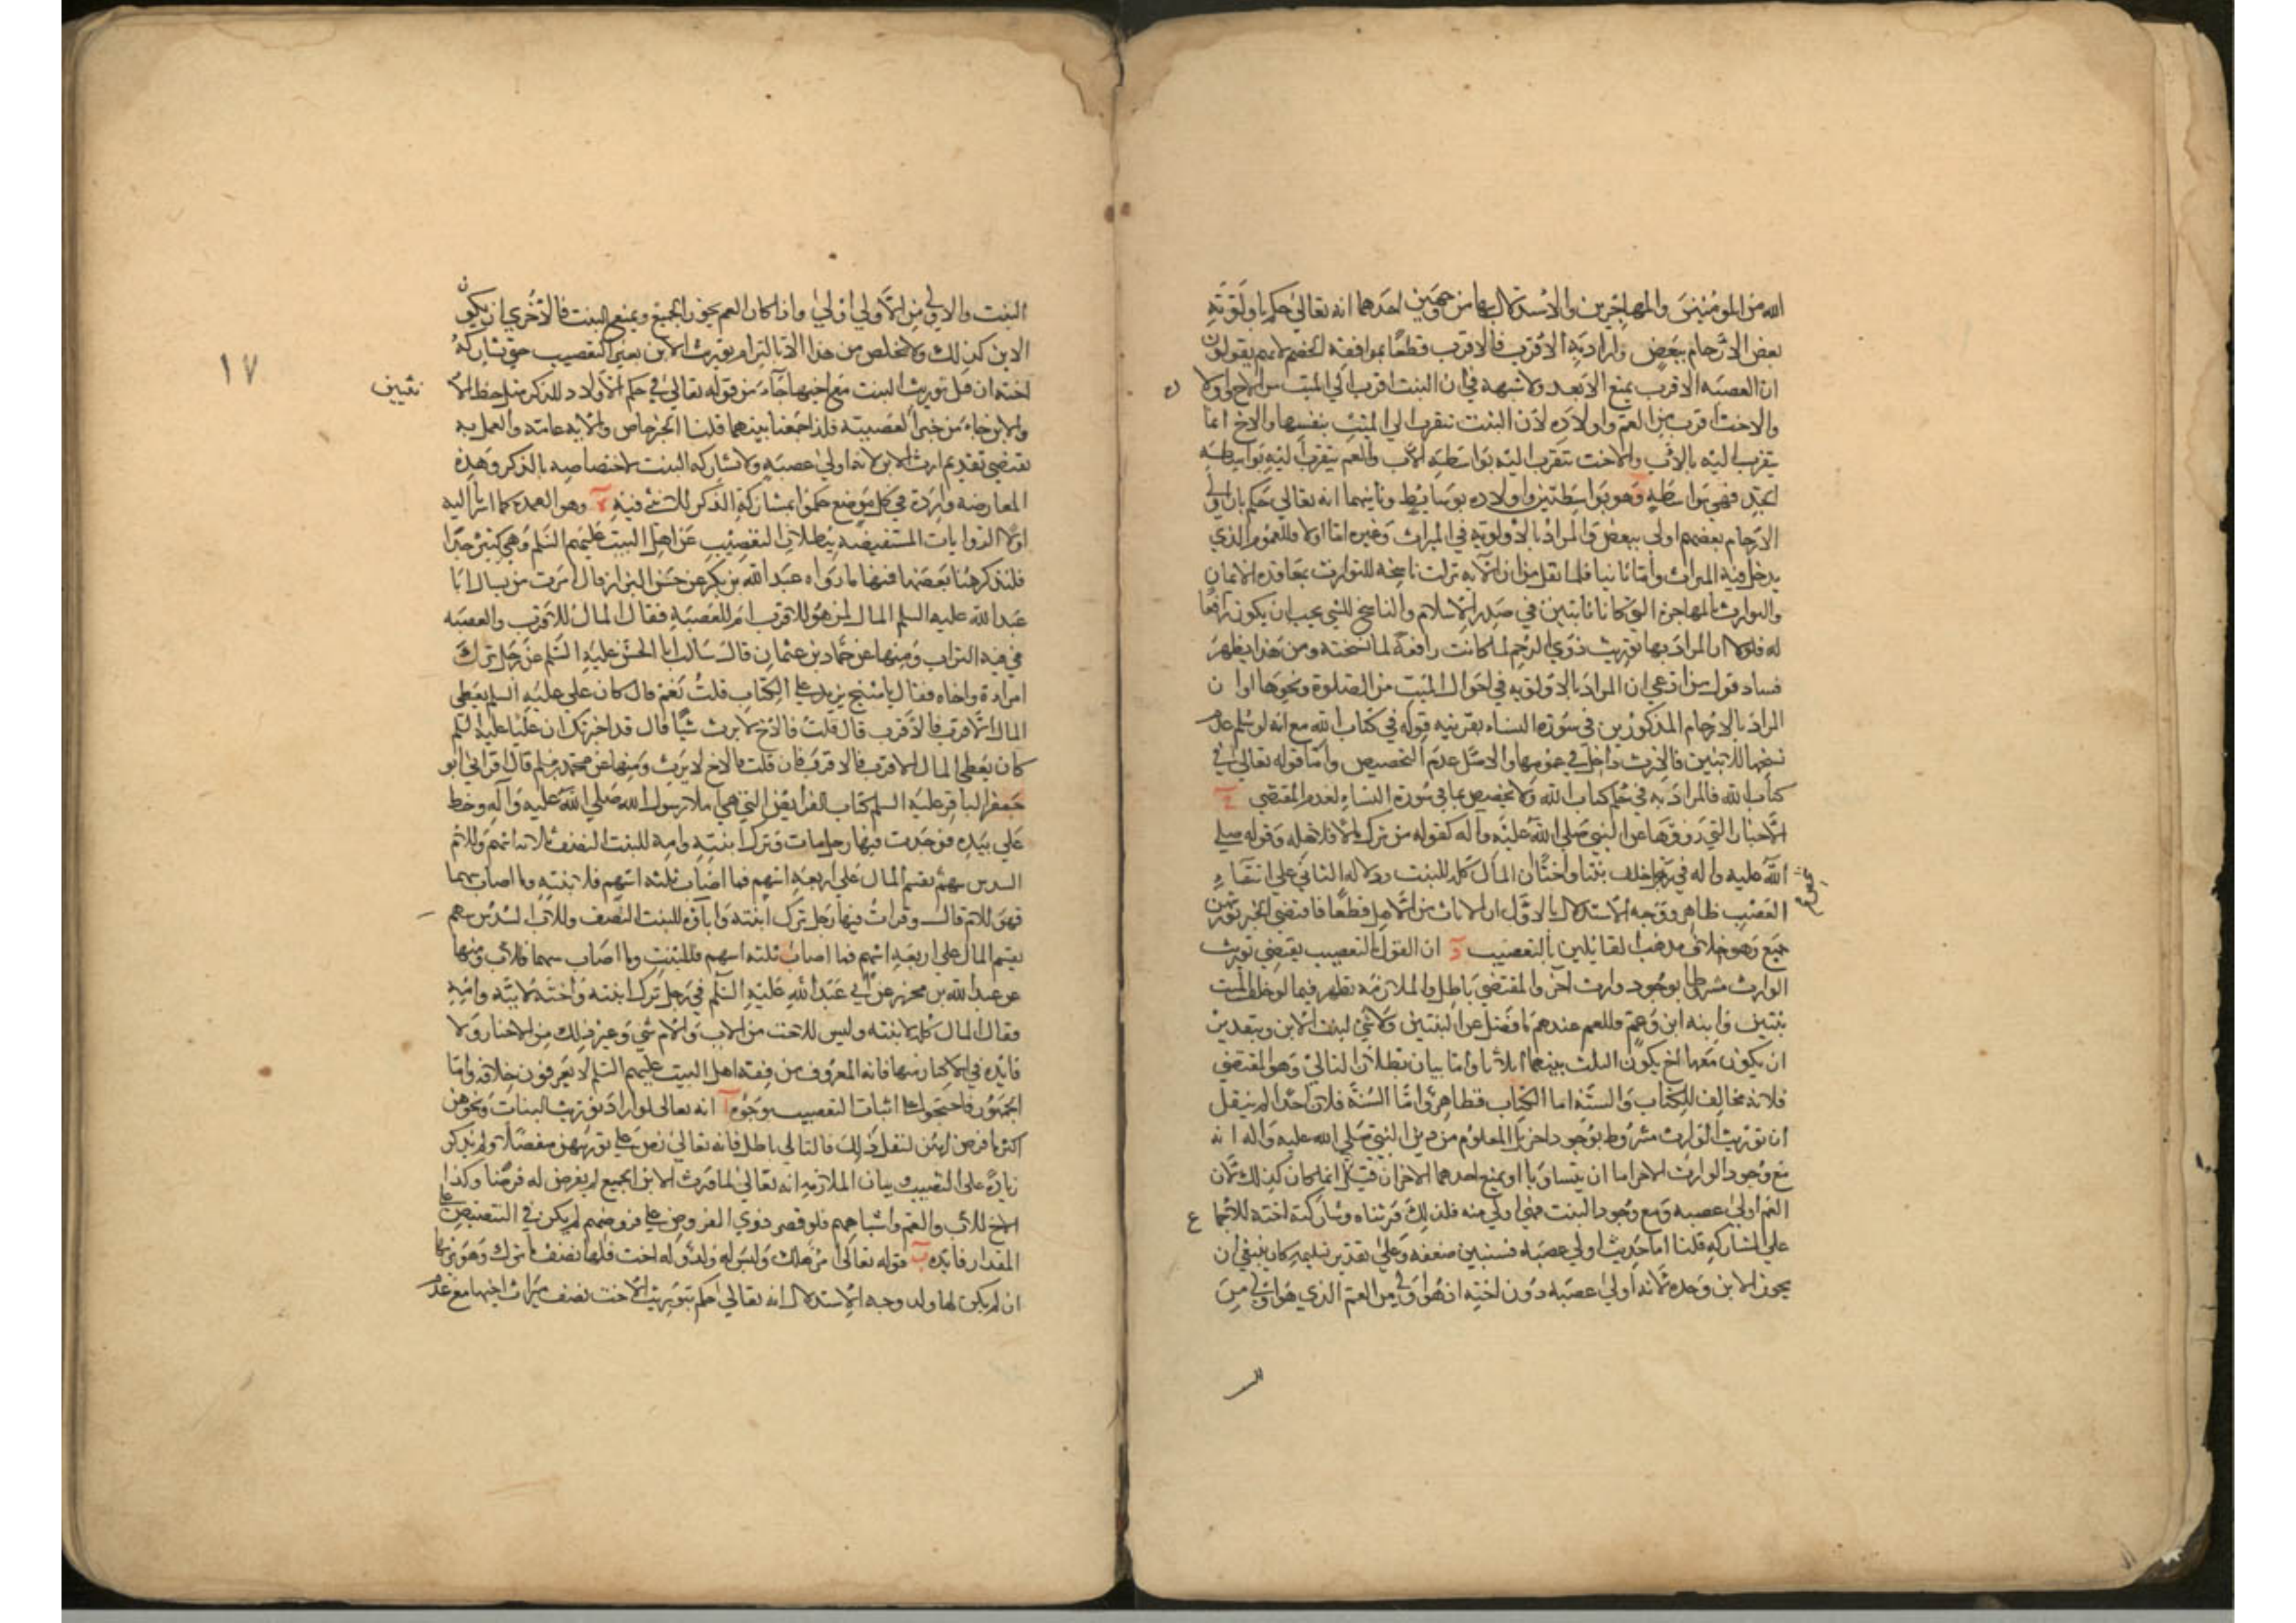 الله من المؤمنين والمهاجرين والاستدلال بها من جهتين احدهما انه تعالى حكم باولوية
بعض الارحام ببعض واراد به الاقرب فالاقرب قطعا بموافقة الخصم لانهم يقولون
ان العصبه الاقرب يمنع الابعد ولا شبهة في ان البنت اقرب الى الميت من الاخ واولاده
والاخت اقرب من العم واولاده لان البنت تتقرب الى الميت بنفسها والاخ انما
يتقرب اليه بالاب والاخت تتقرب اليه بواسطة الاب والعم يتقرب اليه بواسطة
الجد فهي بواسطة وهو بواسطتين واولاده بوسايط وثانيهما انه تعالى حكم بان اولي
الارحام بعضهم اولى ببعض والمراد بالاولوية في الميراث وغيره اما اولا فللعموم الذي
يدخل فيه الميراث واما ثانيا فلما نقل من ان الآية نزلت ناسخة للتوارث بمعاقدة الايمان
والتوارث بالمهاجرة الذين كانا ثابتين في صدر الاسلام والناسخ للشي يجب ان يكون رافعا
له فلولا ان المراد بها توريث ذوي الرحم لما كانت رافعة لما نسخته ومن هذا يظهر
فساد قول من ادعى ان المراد بالاولوية في احوال الميت من الصلوة ونحوها او ان
المراد بالارحام المذكورين في سورة النساء بقرينة قوله في كتاب الله مع انه لو سلم عدم
نسخها للاثنين فالارث داخل في عمومها والاصل عدم التخصيص واما قوله تعالى في
كتاب الله فالمراد به في حكم كتاب الله ولا تخصيص بما في سورة النساء لعدم المقتضي ج
الاخبار التي رووها عن النبي صلى الله عليه وآله كقوله من ترك مالا فلاهله وقوله صلى
الله عليه واله في من خلف بنتا واختا ان المال كله للبنت ودلالة الثاني على انتفاء
التعصيب ظاهر ووجه الاستدلال بالاول ان الاناث من الاهل قطعا فاقتضى الخبر توريثهن
جميع وهو خلاف مذهب القائلين بالتعصيب د ان القول بالتعصيب يقتضي توريث
الوارث مشرطا بوجود وارث آخر والمقتضي باطل والملازمة تظهر فيما لو خلف الميت
بنتين وابنة ابن وعم فللعم عندهم ما فضل عن البنتين ولا شي لبنت الابن وبتقدير
ان يكون معها اخ يكون الثلث بينهما اثلاثا واما بيان بطلان التالي وهو المقتضي
فلانه مخالف للكتاب والسنة اما الكتاب فظاهر واما السنة فلان احدا لم ينقل
ان توريث الوارث مشروط بوجود اخر بل المعلوم من دين النبي صلى الله عليه واله انه
مع وجود الوارث الاخر اما ان يتساويا او يمنع احدهما الاخر ان قيل انما كان كذلك لان
العم اولى عصبة ومع وجود البنت فهي اولى منه فلذلك ورثناه وشاركته اخته للاجماع
على المشاركة قلنا اما حديث اولي عصبة فسنبين ضعفه وعلى تقدير تسليمه كان ينبغي ان
يحوز الابن وحده لانه اولى عصبة دون اخته اذ هو اولى من العم الذي هو اولى من
البنت والاولى من الاولى اولى واذا كان العم يحوز الجميع ويمنع البنت فالاحرى ان يكون
الابن كذلك ولا تخلص من هذا الا بالتزام توريث الابن بغير التعصيب حتى تشاركه
اخته ان قيل توريث البنت مع اخيها جاء من قوله تعالى في حكم الاولاد للذكر مثل حظ الانثيين
والابن جاء من خبر العصبية فلذا جمعنا بينهما قلنا الخبر خاص والآية عامة والعمل به
يقتضي تقديم ارث الابن لانه اولى عصبة ولا تشاركه البنت لاختصاصه بالذكر وهذه
المعارضة واردة في كل موضع حكموا بمشاركة الذكر للانثى فيه ه وهو العمدة كما اشرنا اليه
اولا الروايات المستفيضة ببطلان التعصيب عن اهل البيت عليهم السلم وهي كثيرة جدا
فلنذكر هنا بعضها فمنها ما رواه عبد الله بن بكير عن حسين البزاز قال امرت من يسال ابا
عبد الله عليه السلم المال لمن هو للاقرب ام للعصبة فقال المال للاقرب والعصبه
في فيه التراب ومنها عن حماد بن عثمان قال سالت ابا الحسن عليه السلم عن رجل ترك
امراة واخاه فقال يا منتج تريد على الكتاب قلت نعم قال كان علي عليه السلم يعطي
المال الاقرب فالاقرب قال قلت فالاخ لا يرث شيا قال قد اخبرتك ان عليا عليه السلم
كان يعطي المال الاقرب فالاقرب فان قلت فالاخ لا يرث ومنها عن محمد بن مسلم قال اقراني ابو
جعفر الباقر عليه السلم كتاب الفرايض التي هي املاء رسول الله صلى الله عليه وآله وخط
علي بيده فوجدت فيها رجل مات وترك ابنته وامه للبنت النصف ثلاثة اسهم وللام
السدس سهم يقسم المال على اربعة اسهم فما اصاب ثلثه اسهم فلابنته وما اصاب سهما
فهو للام قال وقرات فيها رجل ترك ابنته واباه للبنت النصف وللاب السدس سهم
يقسم المال على اربعة اسهم فما اصاب ثلثه اسهم فللبنت وما اصاب سهما فللاب ومنها
عن عبد الله بن محرز عن ابي عبد الله عليه السلم في رجل ترك ابنته واخته لابيه وامه
فقال المال كله لابنته وليس للاخت من الاب والام شي وغير ذلك من الاخبار ولا
فايدة في الاكثار منها فانه المعروف من فقه اهل البيت عليهم السلم لا يعرفون خلافه واما
الجمهور فاحتجوا على اثبات التعصيب بوجوه آ انه تعالى لو اراد توريث البنات ونحوهن
اكثر ما فرض لهن لفعل ذلك فالتالي باطل فانه تعالى نص على توريثهن مفصلا ولم يذكر
زيادة على النصيب بيان الملازمة انه تعالى لما ورث الابن الجميع لم يفرض له فرضا وكذا
الاخ للاب والعم واشباههم فلو قصر ذوي الفروض على فروضهم لم يكن في التنصيص على
المقدار فايدة ب قوله تعالى ان امرؤ هلك وليس له ولد وله اخت فلها نصف ما ترك وهو يرثها
ان لم يكن لها ولد وجه الاستدلال انه تعالى حكم بتوريث الاخت نصف ميراث اخيها مع عدم
١٧